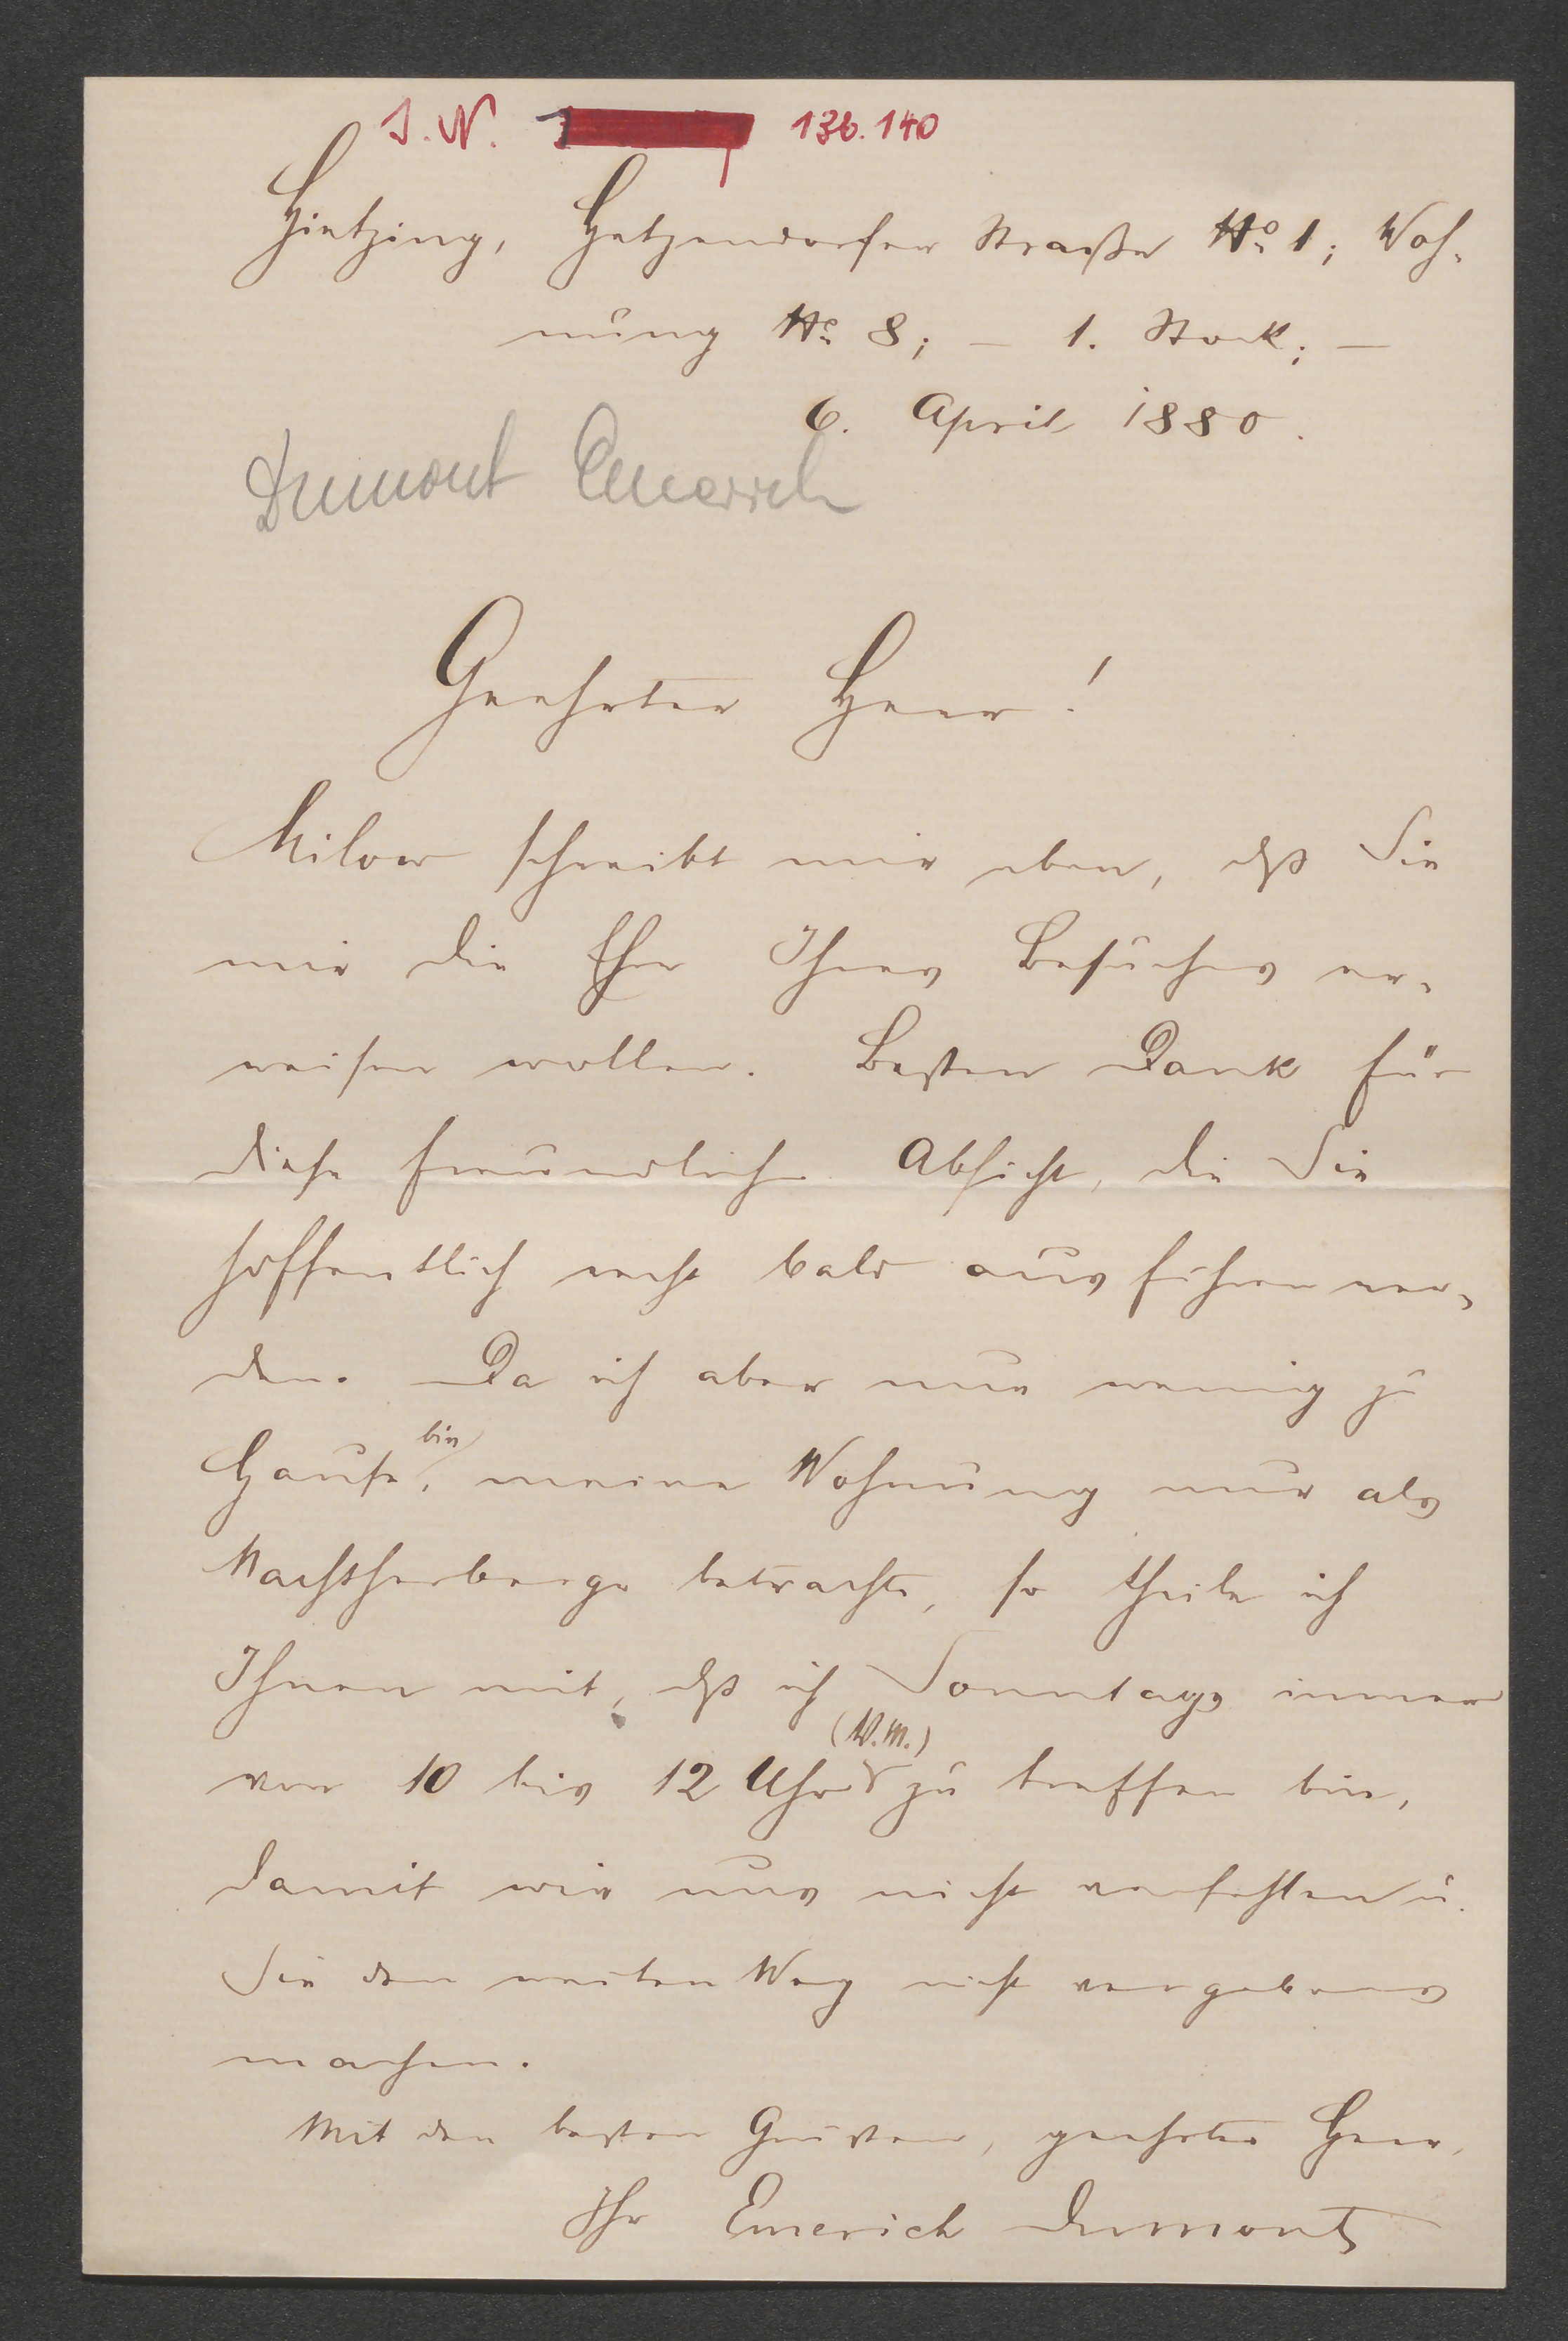 J. N. 136.140
Hietzing, Hetzendorfer Straße No 1; Woh-
nung No 8; – 1. Stock; –
6. April 1880.
Dumont Emerich
Geehrter Herr!
Milow schreibt mir eben, dß Sie
mir die Ehre Ihres Besuches er-
weisen wollen. Besten Dank für
diese freundliche Absicht, die Sie
hoffentlich recht bald ausführen wer-
den. Da ich aber nur wenig zu
Hause bin, meine Wohnung nur als
Nachtherberge betrachte, so theile ich
Ihnen mit, dß ich Sonntags immer
von 10 bis 12 Uhr (V. M.) zu treffen bin,
damit wir uns nicht verfehlen u.
Sie den weiten Weg nicht vergebens
machen.
Mit den besten Grüßen, geehrter Herr,
Ihr Emerich Dumont